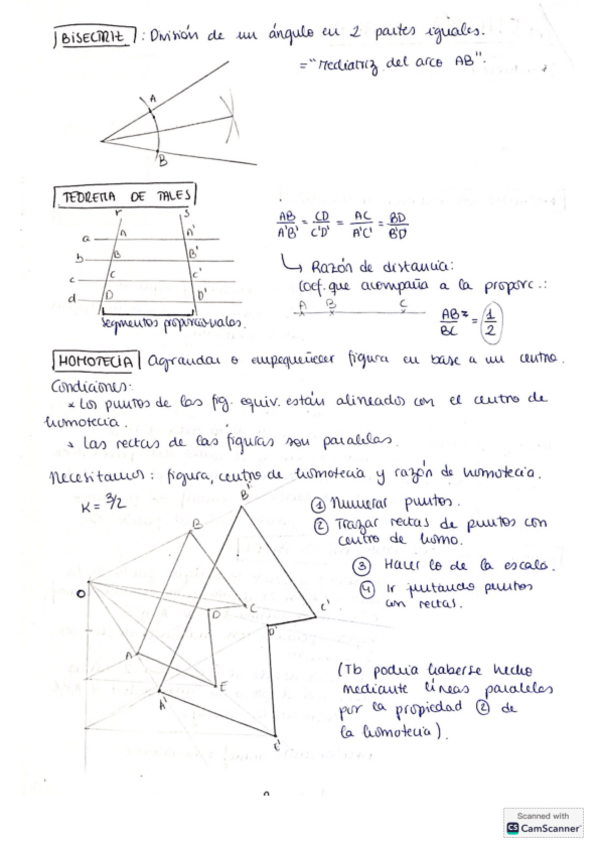 BISECTRIZ : División de un ángulo en 2 partes iguales.
= "Mediatriz del arco AB".
A
B
TEOREMA DE TALES
r s
a A A'
b B B'
c C C'
d D D'
segmentos proporcionales.
AB/A'B' = CD/C'D' = AC/A'C' = BD/B'D
↳ Razón de distancia:
Coef. que acompaña a la proporc.:
A B C
AB/BC = 1/2
HOMOTECIA Agrandar o empequeñecer figura en base a un centro.
Condiciones:
* Los puntos de las fig. equiv. están alineados con el centro de
homotecia.
* Las rectas de las figuras son paralelas.
Necesitamos: figura, centro de homotecia y razón de homotecia.
K = 3/2
① Numerar puntos.
② Trazar rectas de puntos con
centro de homo.
③ Hacer lo de la escala.
④ Ir juntando puntos
con rectas.
B'
B
O
D
C
C'
D'
A
E
A'
E'
(Tb podría haberse hecho
mediante líneas paralelas
por la propiedad ② de
la homotecia).
Scanned with
CS CamScanner